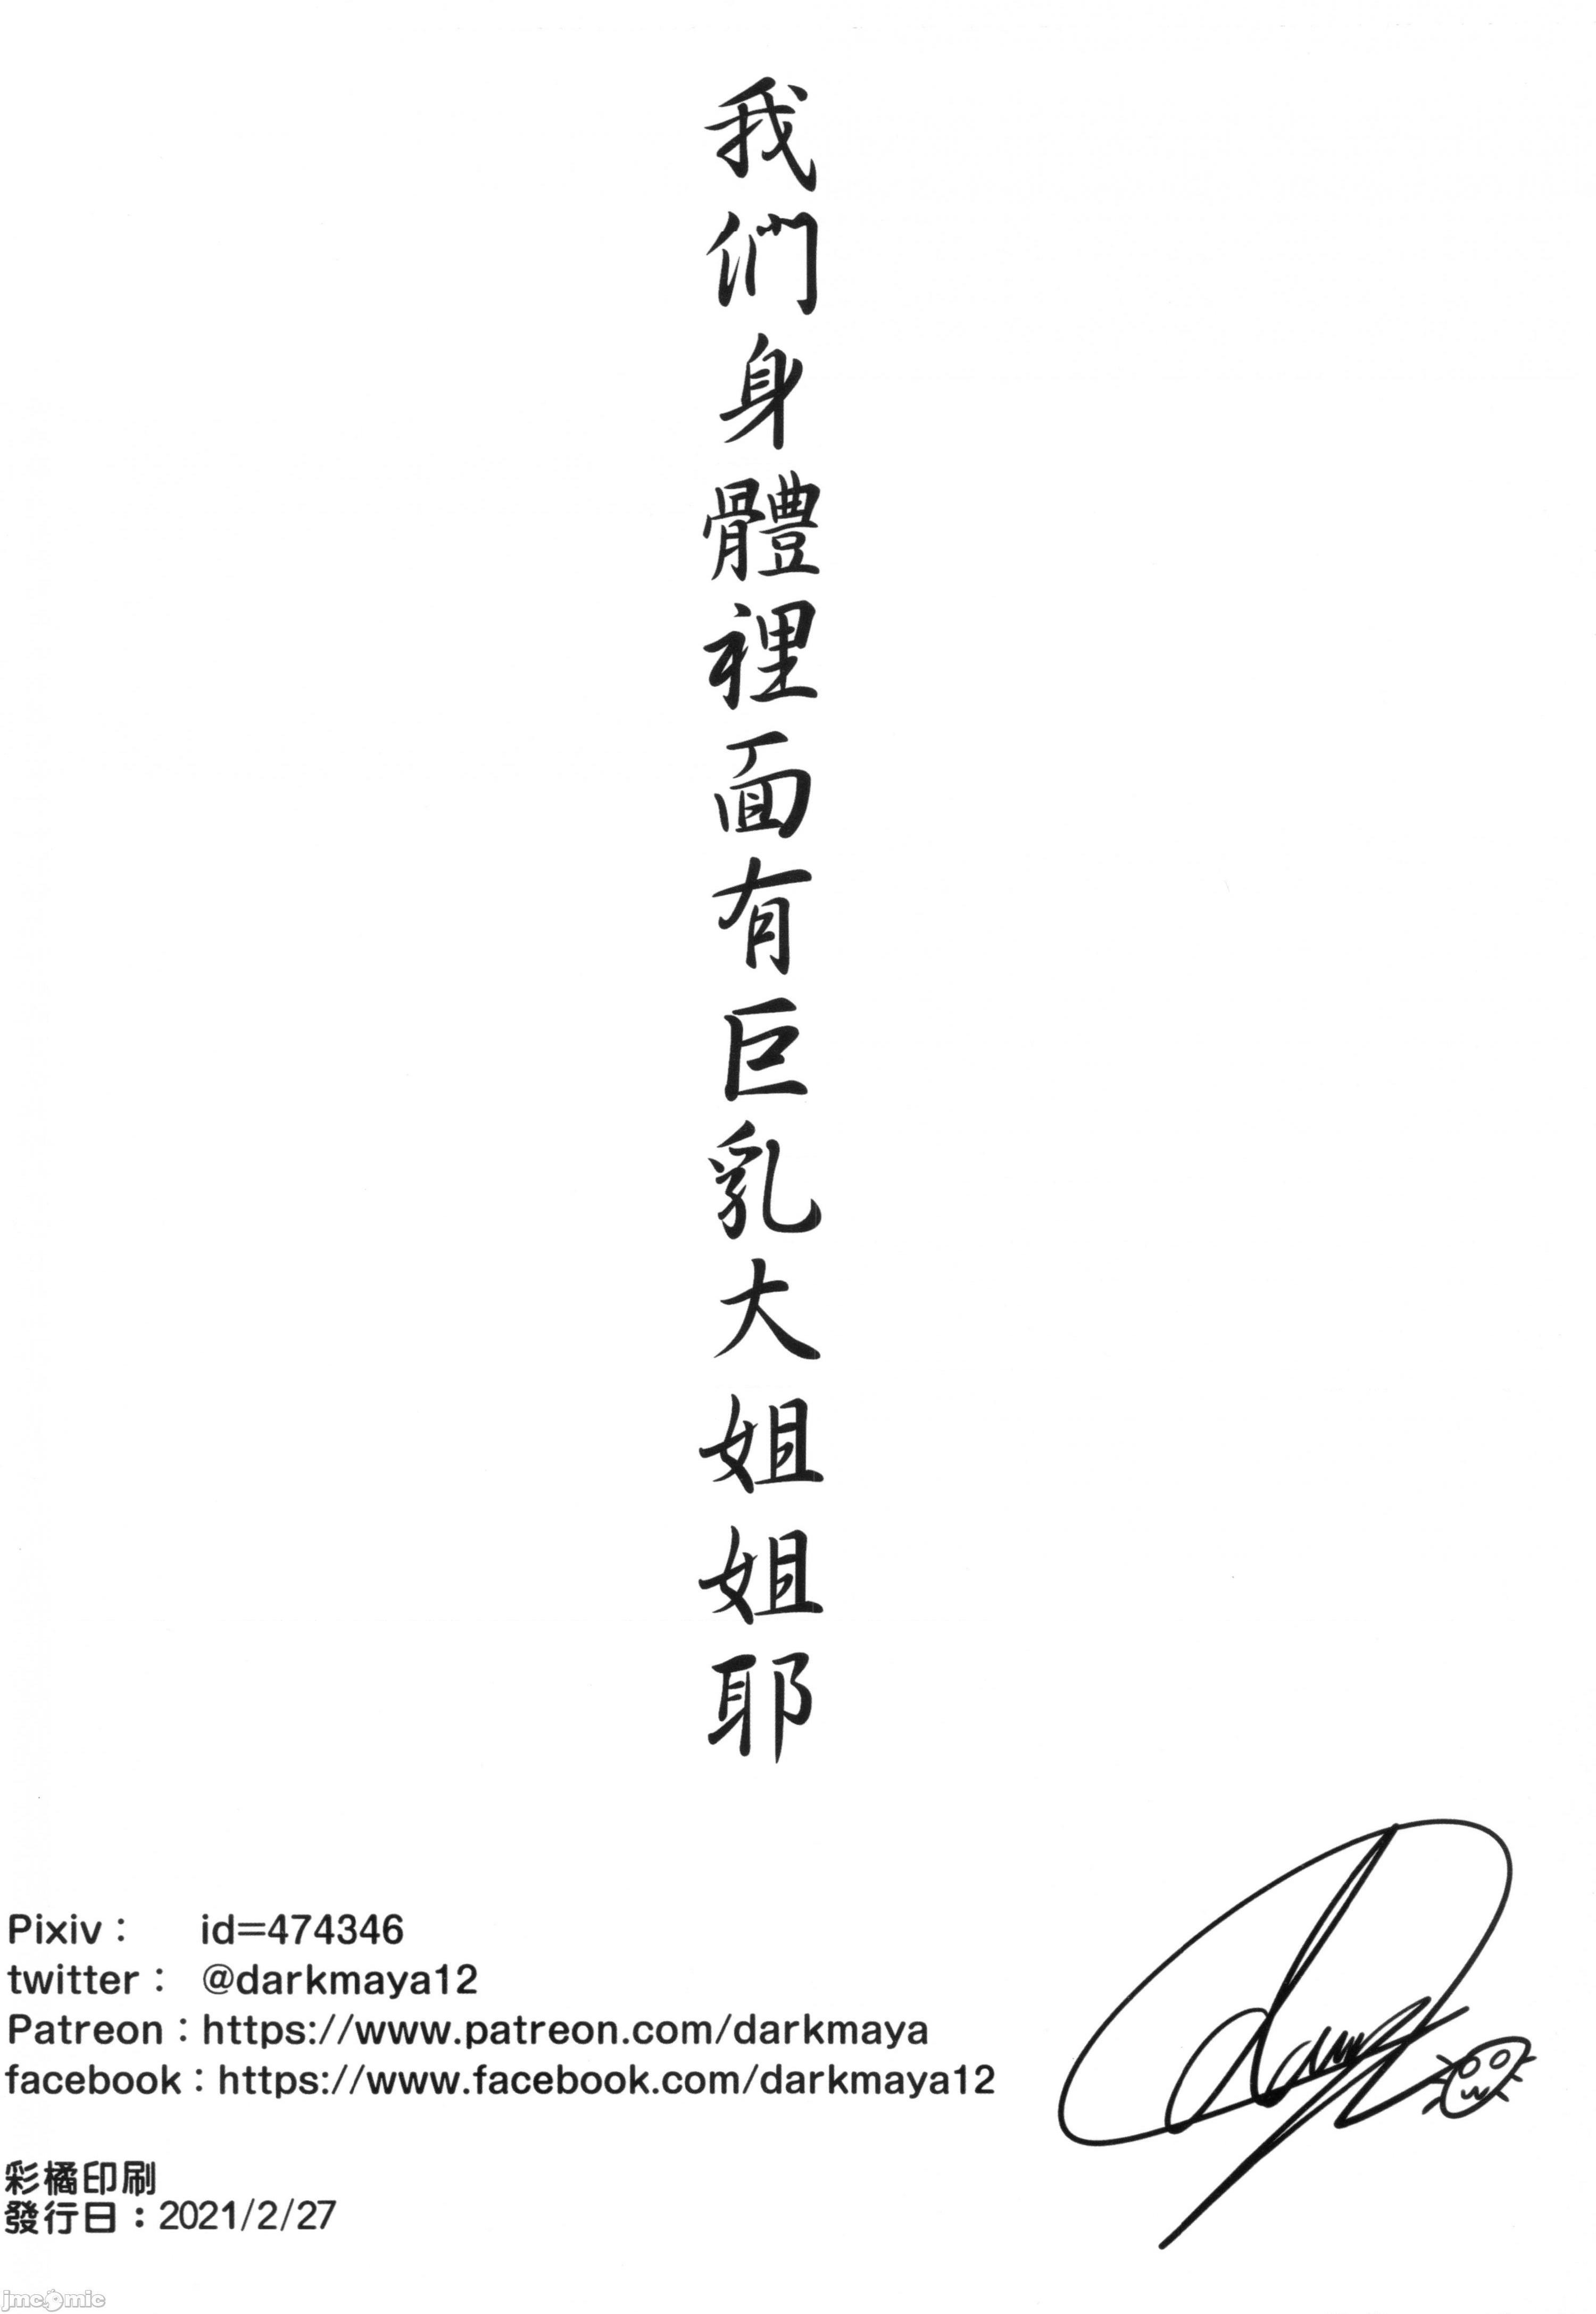 我們身體裡面有巨乳大姐姐耶
Pixiv： id=474346
twitter： @darkmaya12
Patreon：https://www.patreon.com/darkmaya
facebook：https://www.facebook.com/darkmaya12
彩橘印刷
發行日：2021/2/27
jmcomic